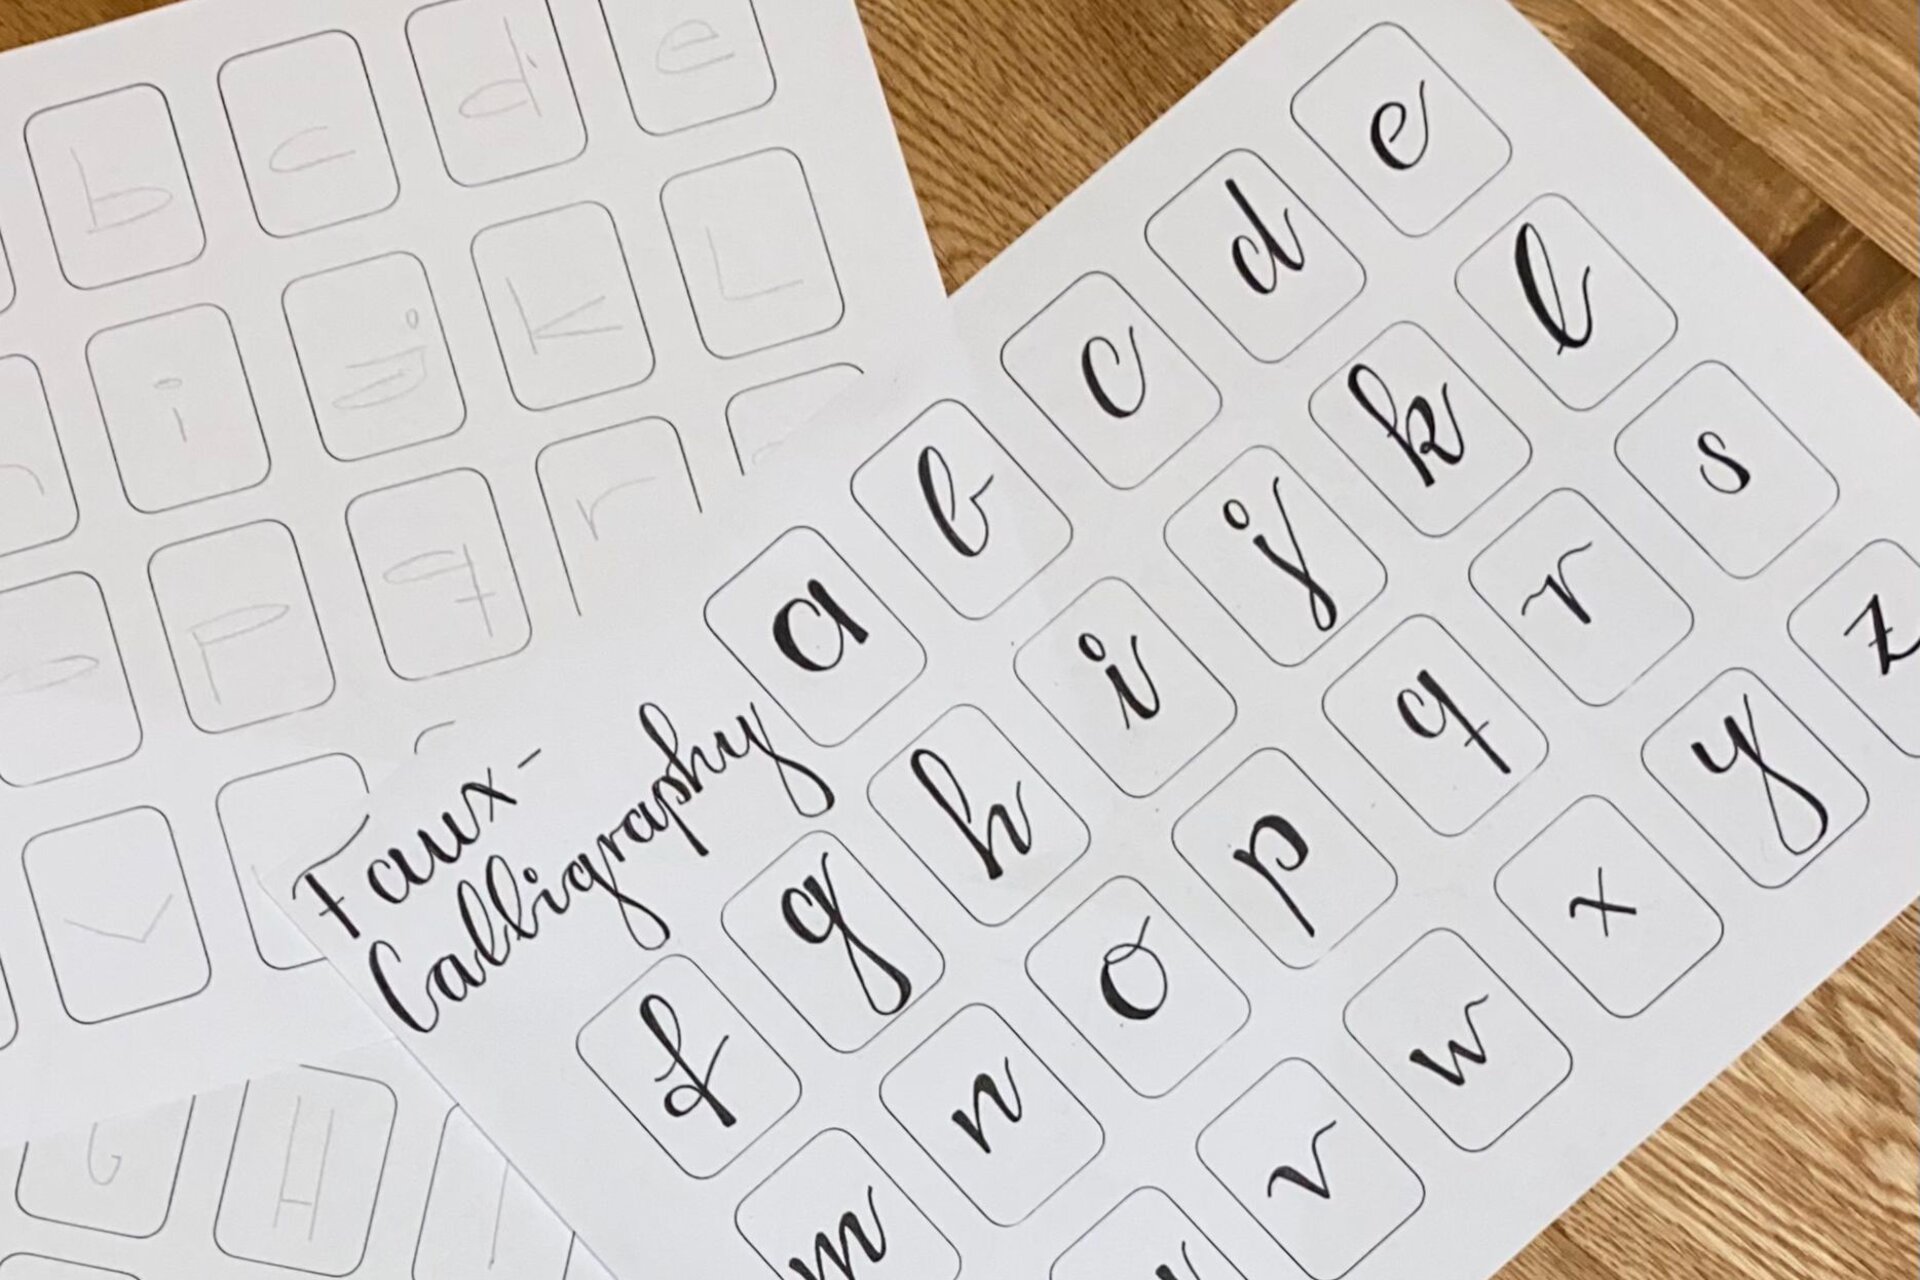 b c d e
i j k L
p q r
v
G H
Faux-
Calligraphy
a b c d e
f g h i j k l
m n o p q r s
v w x y z